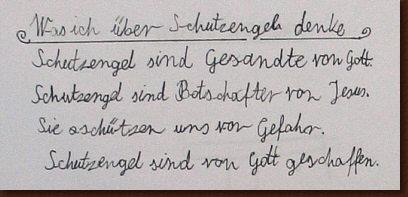 Was ich über Schutzengel denke
Schutzengel sind Gesandte von Gott.
Schutzengel sind Botschafter von Jesus.
Sie schützen uns vor Gefahr.
Schutzengel sind von Gott geschaffen.